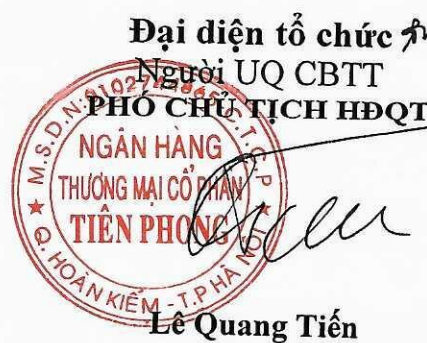 Đại diện tổ chức
Người UQ CBTT
PHÓ CHỦ TỊCH HĐQT
M.S.D.N: C.T.C.P
NGÂN HÀNG
THƯƠNG MẠI CỔ PHẦN
TIÊN PHONG
Q. HOÀN KIẾM - T.P HÀ NỘI
Lê Quang Tiến